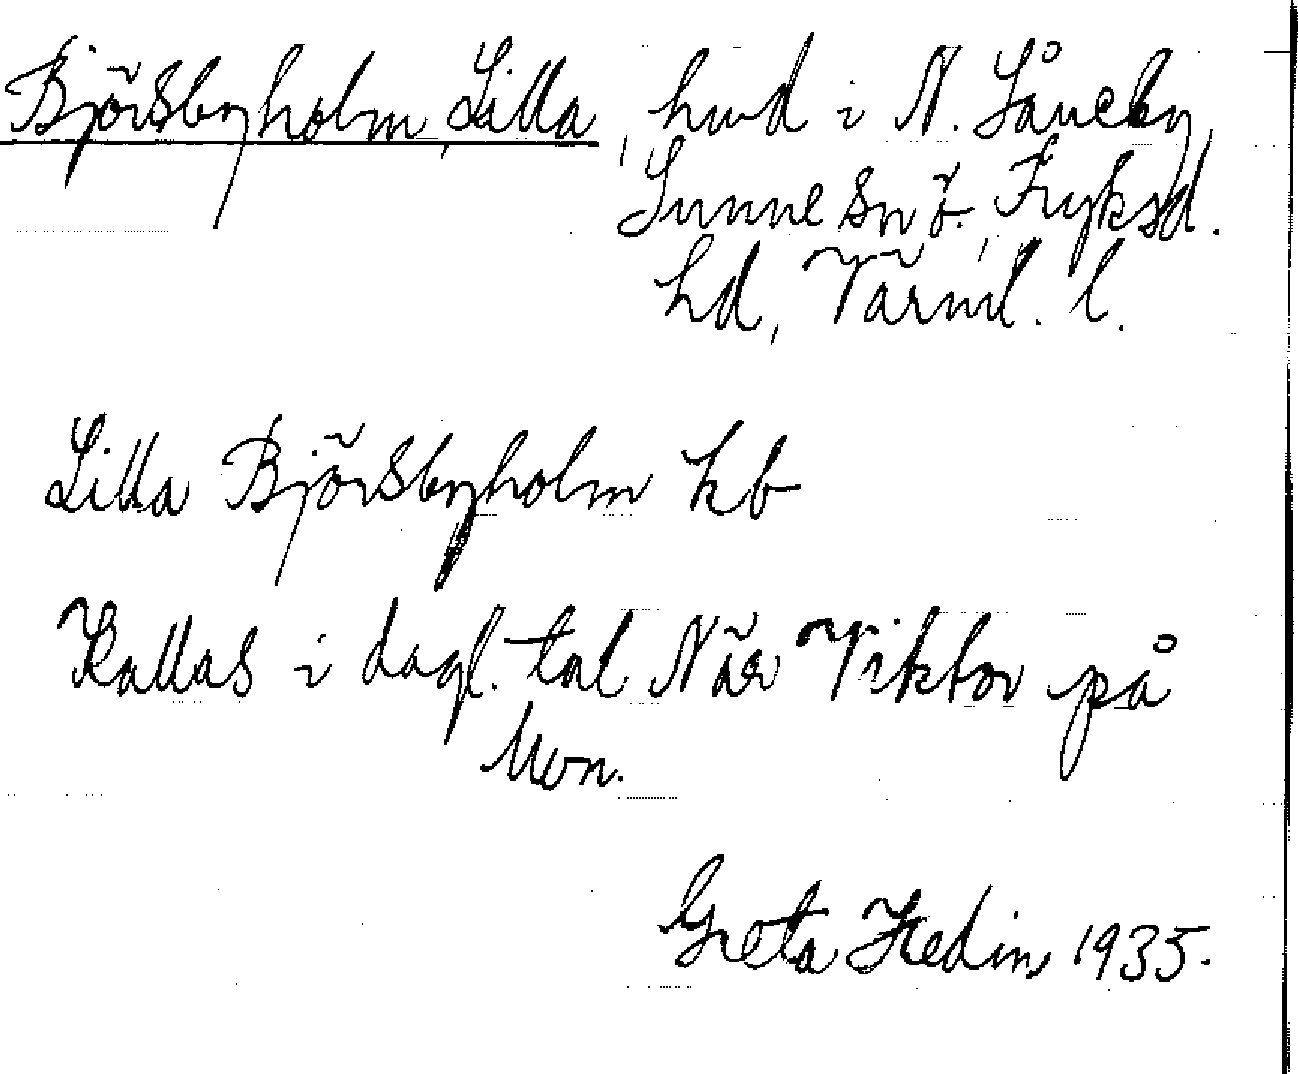 Björsbyholm, Lilla, hmd i N. Såneby,
Sunne sn ö., Fryksd.
hd, Värml. l.
Lilla Björsbyholm kb
Kallas i dagl. tal När Viktor på
Mon.
Greta Hedin 1935.